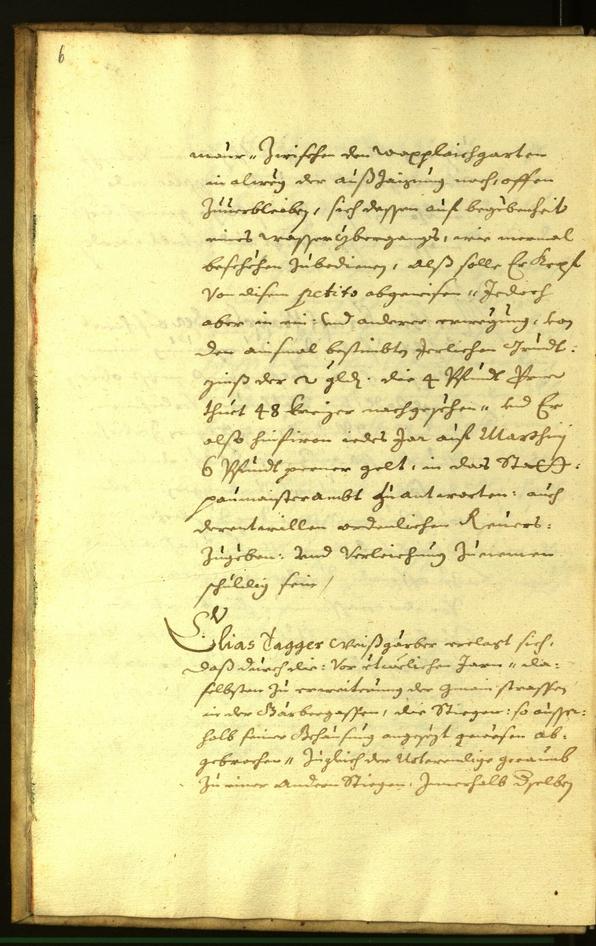 6
maur„ Zwischen den wappleichgarten
in alweg der außzaigung nach, offen
Zuuerbleiben, sich dessen auf begebenheit
eines wasser ybergangs, wie mermal
beschehen Zubedienen, alß solle Er Kepf
Von disem petito abgewisen„ Jedoch
aber in ein: Und anderer erwegung, von
den ainsmal bestimbten Jerlichen Grundt:
zinß der 2 gld. die 4 Pfundt Perner
thuet 48 kreizer nachgesehen„ und Er
also hinfiron iedes Jar auf Marthinj
6 Pfundt perner gelt, in das Statt:
paumaisterambt Zu antworten: auch
derentwillen ordenlichen Reuers:
Zugeben: Und Verleichung Zunemen
schuldig sein/
Elias Tagger Weißgärber erclagt sich,
daß durch die: Vor etwelichen Jarn„ da:
selbsten Zu erweiterung der gmain strassen
in der Gärbergassen, die Stiegen: so ausser:
halb seiner Behausung angesezt gewesen ab:
gebrochen„ Zugleich der Notwendige geraumb
Zu einer Andern Stiegen, Innerhalb Dselben